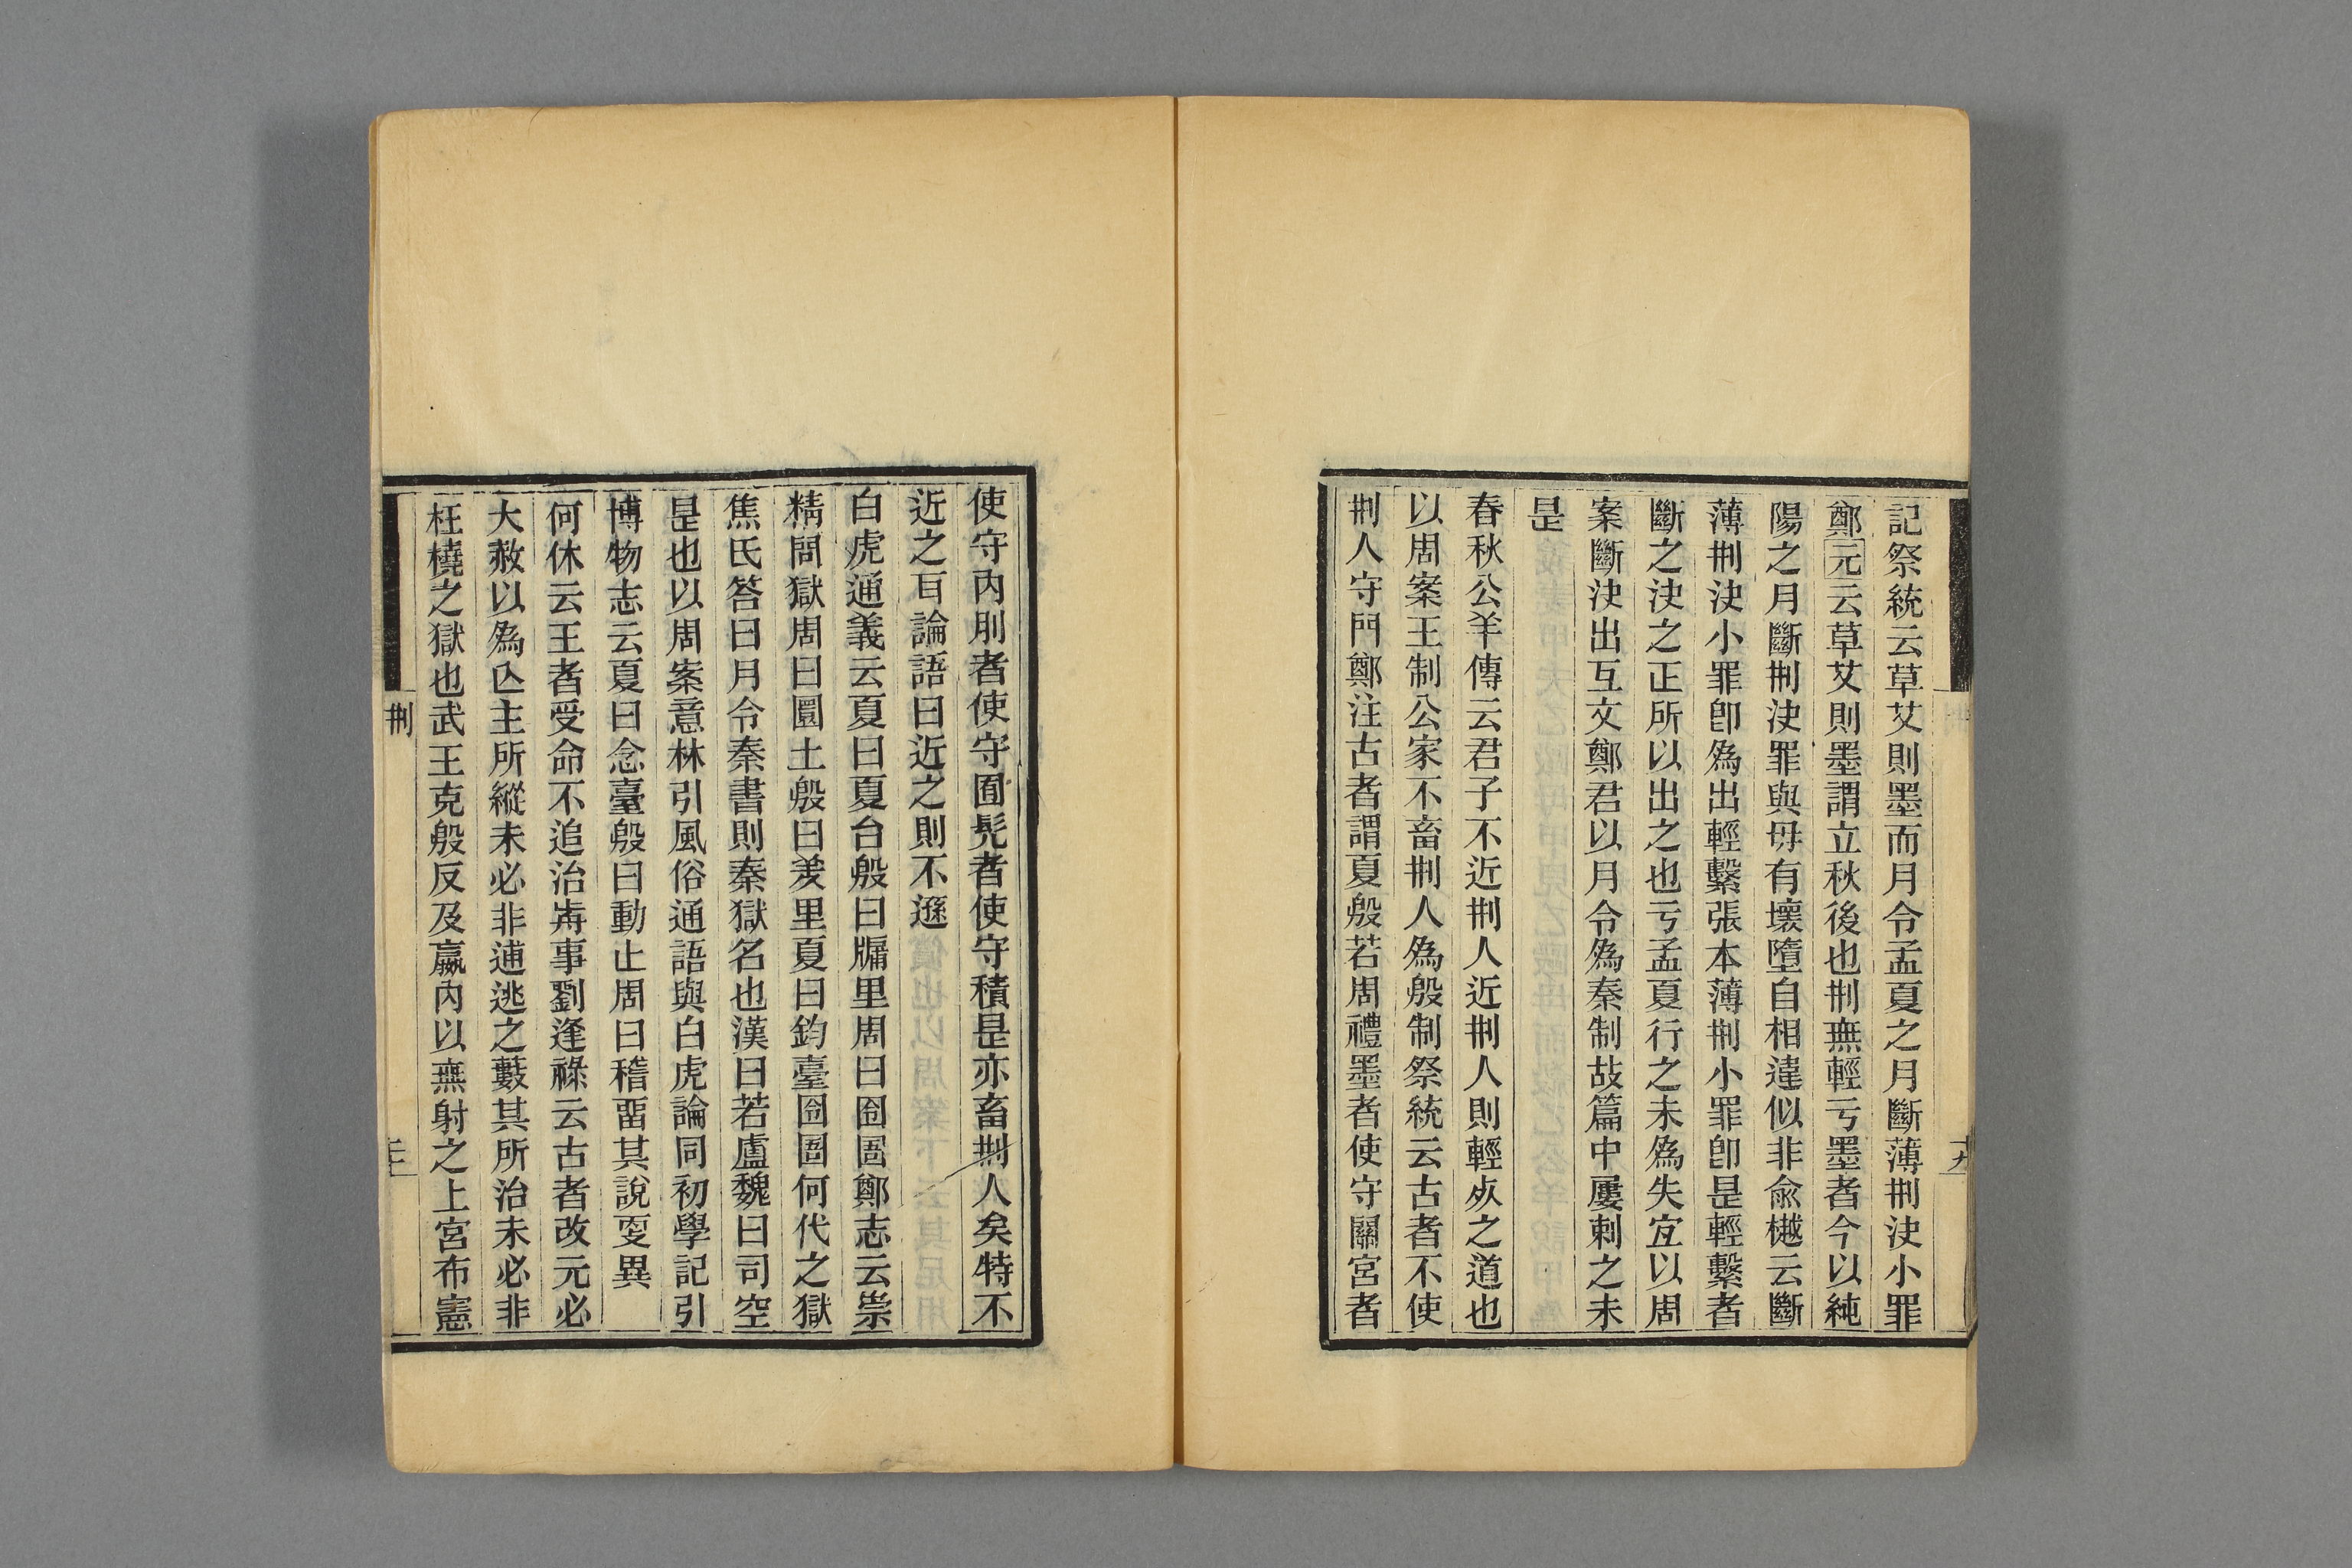 記祭統云草艾則墨而月令孟夏之月斷薄㓝決小罪
鄭元云草艾則墨謂立秋後也㓝無輕亏墨者今以純
陽之月斷㓝決罪與毋有壞墮自相違似非俞樾云斷
薄㓝決小罪卽爲出輕繫張本薄㓝小罪卽是輕繫者
斷之決之正所以出之也亏孟夏行之未爲失宜以周
案斷決出互文鄭君以月令爲秦制故篇中屢刺之未
是
春秋公羊傳云君子不近㓝人近㓝人則輕㱾之道也
以周案王制公家不畜㓝人爲殷制祭統云古者不使
㓝人守門鄭注古者謂夏殷若周禮墨者使守關宮者
十九
使守內刖者使守囿髡者使守積是亦畜㓝人矣特不
近之耳論語曰近之則不遜
白虎通義云夏曰夏台殷曰牖里周曰囹圄鄭志云崇
精問獄周曰圜土殷曰羑里夏曰鈞臺囹圄何代之獄
焦氏答曰月令秦書則秦獄名也漢曰若盧魏曰司空
是也以周案意林引風俗通語與白虎論同初學記引
博物志云夏曰念臺殷曰動止周曰稽畱其說叓異
何休云王者受命不追治歬事劉逢祿云古者改元必
大赦以爲亾主所縱未必非逋逃之藪其所治未必非
枉橈之獄也武王克殷反及嬴內以無射之上宮布憲
㓝
二十